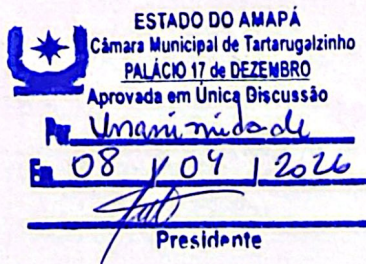 ESTADO DO AMAPÁ
Câmara Municipal de Tartarugalzinho
PALÁCIO 17 de DEZEMBRO
Aprovada em Única Discussão
Por Unanimidade
Em 08 / 04 / 2026
Presidente